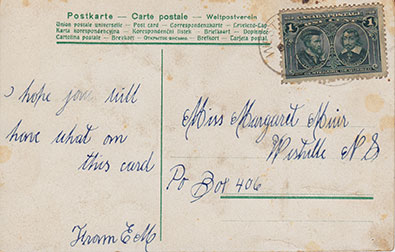 Postkarte — Carte postale — Weltpostverein
Union postale universelle — Post card — Correspondenzkarte —
Karta korespondencyjna — Korespondenční lístek — Brevkort —
Cartolina postale — Brefkort — Tarjeta postal
CANADA POSTAGE
1 1
I hope you will
have what on
this card
From E M
Miss Margaret Muir
Westville N S
Po Box 406